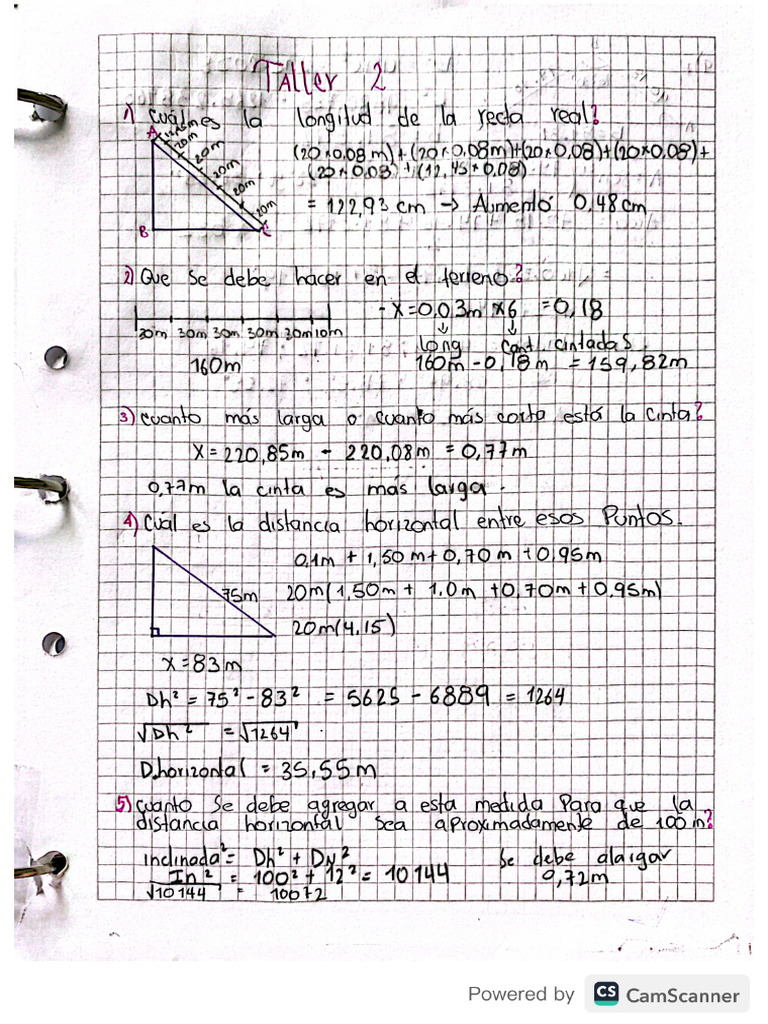 Taller 2
1) Cuál es la longitud de la recta real?
A
12,45m
20m
20m
20m
20m
20m
B
C
(20+0,08m)+(20+0,08m)+(20+0,08)+(20+0,08)+
(20+0,08)+(12,45+0,08)
= 122,93 cm → Aumentó 0,48cm
2) Que se debe hacer en el terreno?
30m 30m 30m 30m 30m 10m
160m
- X=0,03m x6 =0,18
Long Cant. cintadas.
160m-0,18m = 159,82m
3) cuanto más larga o cuanto más corta está la cinta?
X = 220,85m - 220,08m = 0,77m
0,77m la cinta es más larga.
4) Cuál es la distancia horizontal entre esos Puntos.
75m
0,1m + 1,50m+0,70m+0,95m
20m(1,50m + 1.0m +0,70m+0,95m)
20m(4,15)
X=83m
Dh² = 75² - 83² = 5625 - 6889 = 1264
√Dh² = √1264
D.horizontal = 35,55m
5) cuanto se debe agregar a esta medida Para que la
distancia horizontal sea aproximadamente de 100m?
Inclinada² = Dh² + DN²
In² = 100² + 12² = 10144
√10144 = 10072
Se debe alargar
0,72m
Powered by CS CamScanner